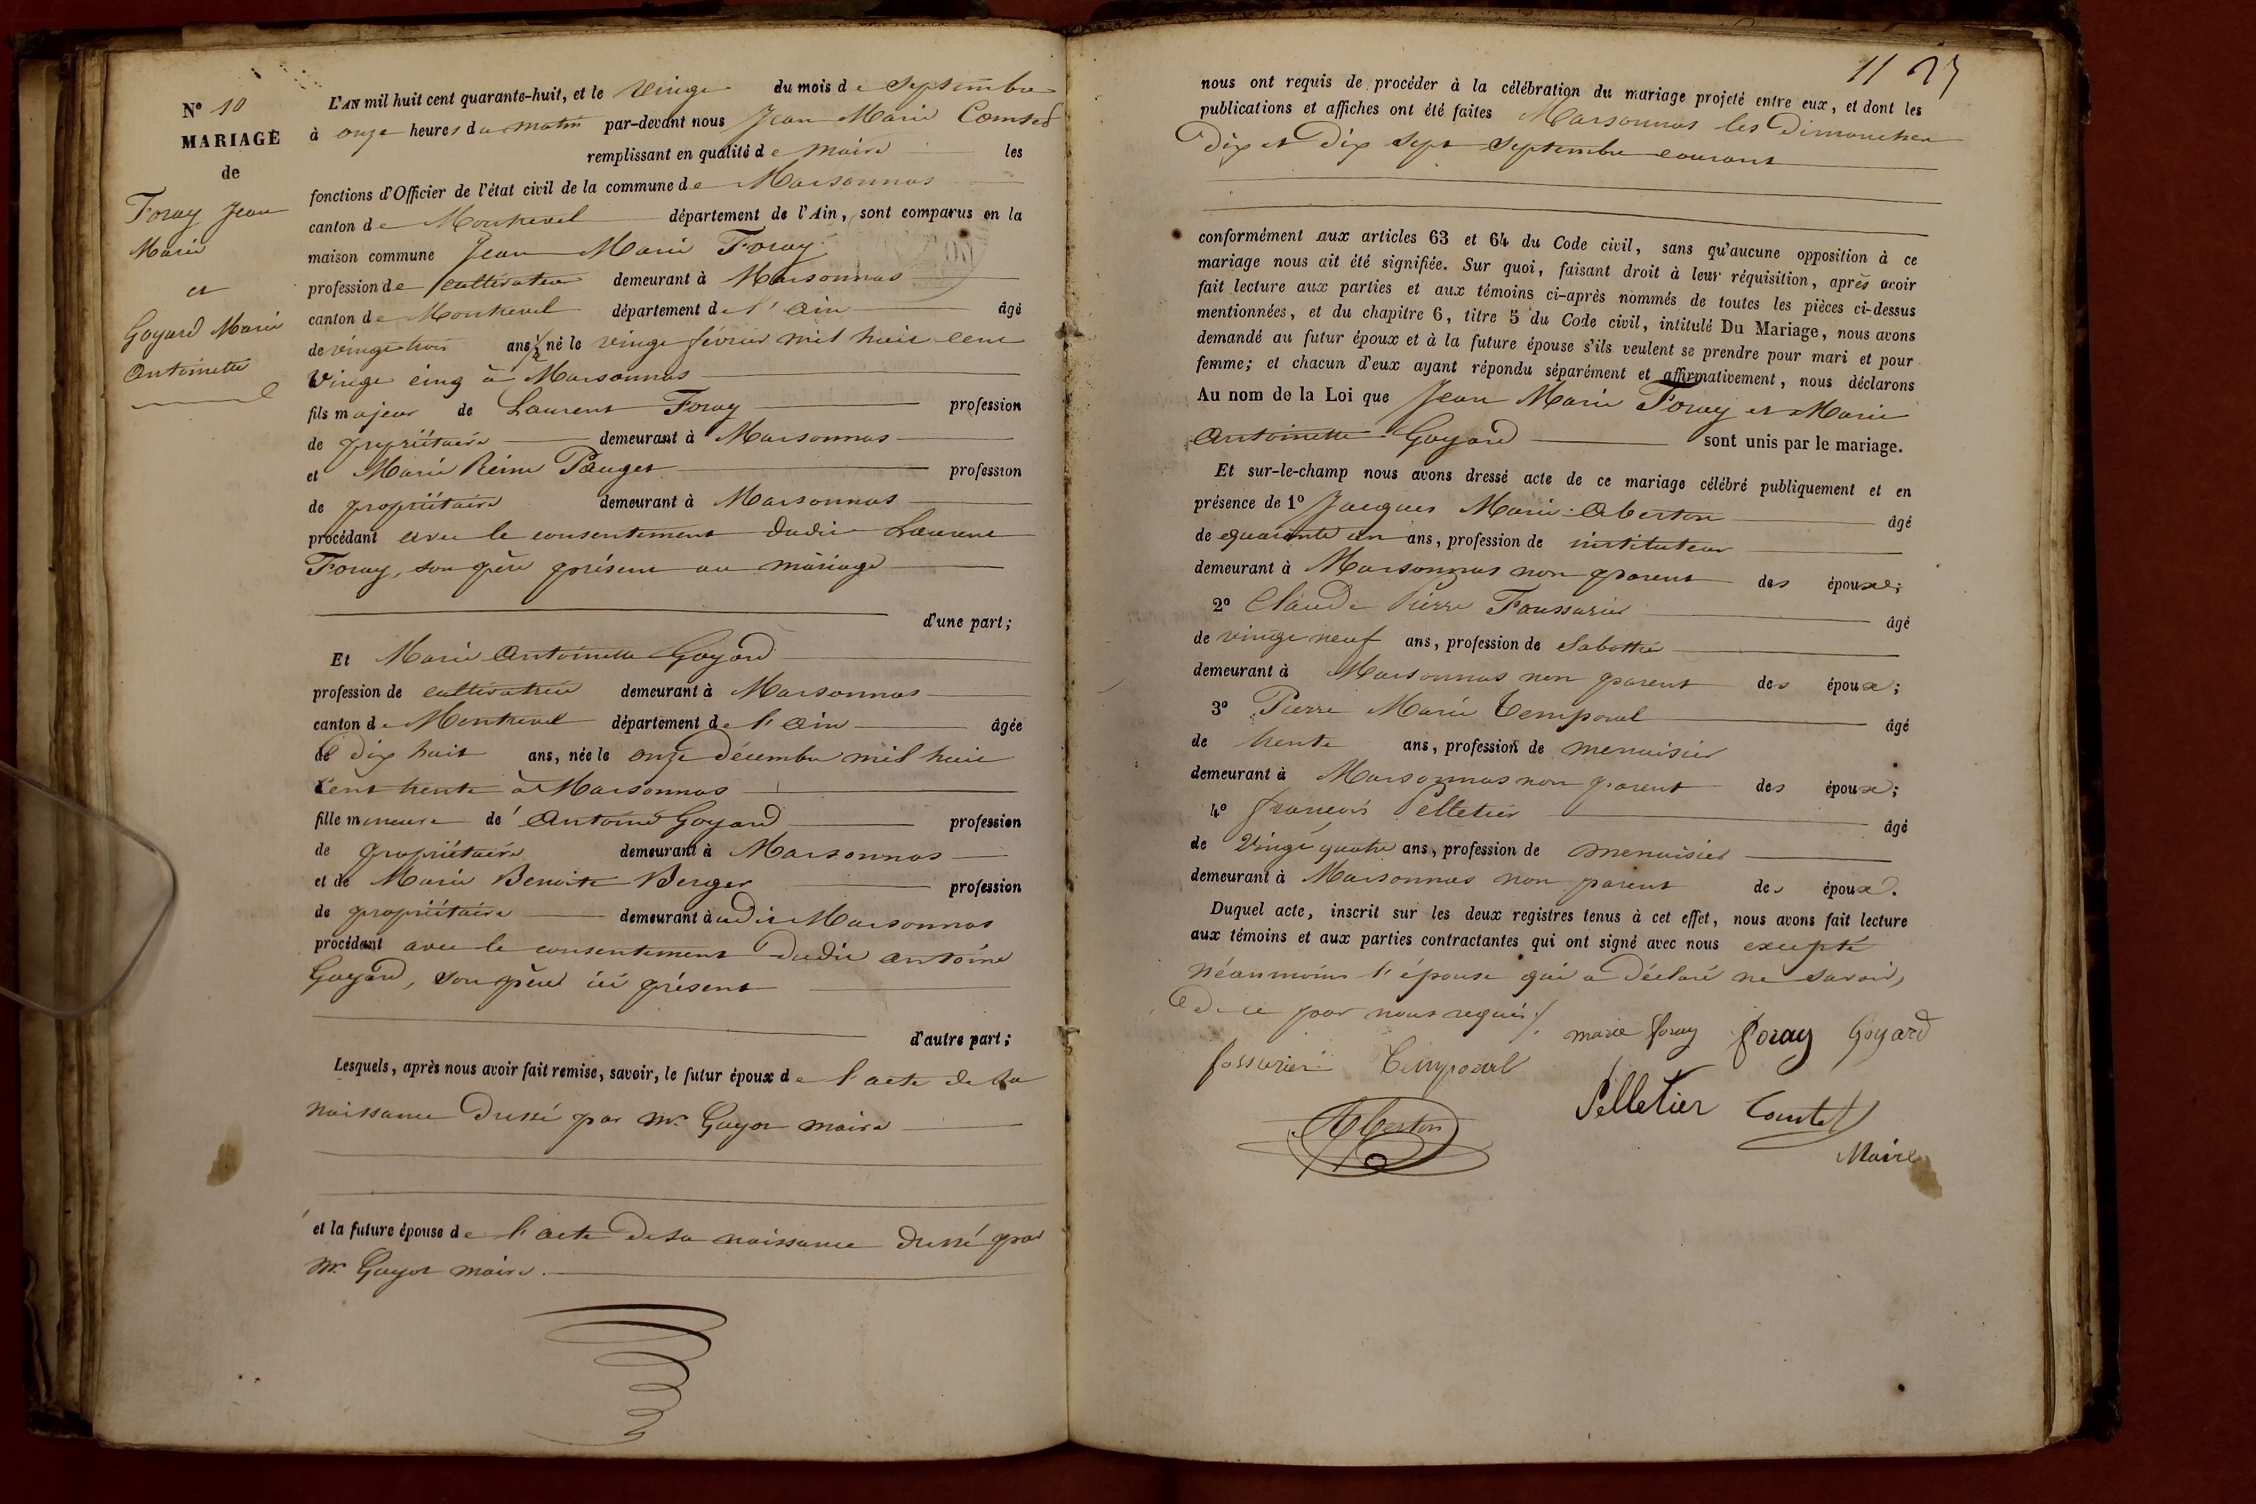 N° 10
MARIAGE
de
Foray Jean
Marie
et
Goyard Marie
Antoinette
L'AN mil huit cent quarante-huit, et le vingt du mois de Septembre
à onze heures du matin par-devant nous Jean Marie Comtet
remplissant en qualité de maire les
fonctions d'Officier de l'état civil de la commune de Marsonnas
canton de Montrevel département de l'Ain, sont comparus en la
maison commune Jean Marie Foray
profession de cultivateur demeurant à Marsonnas
canton de Montrevel département de l'ain âgé
de vingt trois ans ½ né le vingt février mil huit cent
vingt cinq à Marsonnas
fils majeur de Laurent Foray profession
de propriétaire demeurant à Marsonnas
et Marie Reine Pauget profession
de propriétaire demeurant à Marsonnas
procédant avec le consentement dudit Laurent
Foray, son père présent au mariage
d'une part;
Et Marie Antoinette Goyard
profession de cultivatrice demeurant à Marsonnas
canton de Montrevel département de l'ain âgée
de dix huit ans, née le onze décembre mil huit
cent trente à Marsonnas
fille mineure de Antoine Goyard profession
de propriétaire demeurant à Marsonnas
et de Marie Benoite Berger profession
de propriétaire demeurant à udit Marsonnas
procédant avec le consentement dudit antoine
Goyard, son père ici présent
d'autre part;
Lesquels, après nous avoir fait remise, savoir, le futur époux de l'acte de sa
naissance dressé par Mr. Guyot maire
et la future épouse de l'acte de sa naissance dressé par
Mr. Guyot maire.
11 27
nous ont requis de procéder à la célébration du mariage projeté entre eux, et dont les
publications et affiches ont été faites Marsonnas les Dimanches
dix et dix sept septembre courant
conformément aux articles 63 et 64 du Code civil, sans qu'aucune opposition à ce
mariage nous ait été signifiée. Sur quoi, faisant droit à leur réquisition, après avoir
fait lecture aux parties et aux témoins ci-après nommés de toutes les pièces ci-dessus
mentionnées, et du chapitre 6, titre 5 du Code civil, intitulé Du Mariage, nous avons
demandé au futur époux et à la future épouse s'ils veulent se prendre pour mari et pour
femme; et chacun d'eux ayant répondu séparément et affirmativement, nous déclarons
Au nom de la Loi que Jean Marie Foray et Marie
Antoinette Goyard sont unis par le mariage.
Et sur-le-champ nous avons dressé acte de ce mariage célébré publiquement et en
présence de 1° Jacques Marie Oberton âgé
de quarante un ans, profession de instituteur
demeurant à Marsonnas non parent des époux;
2° Claude Pierre Faussurier âgé
de vingt neuf ans, profession de Sabottier
demeurant à Marsonnas non parent des époux;
3° Pierre Marie Temporal âgé
de trente ans, profession de menuisier
demeurant à Marsonnas non parent des époux;
4° françois Pelletier âgé
de vingt quatre ans, profession de menuisier
demeurant à Marsonnas non parent des époux.
Duquel acte, inscrit sur les deux registres tenus à cet effet, nous avons fait lecture
aux témoins et aux parties contractantes qui ont signé avec nous excepté
néanmoins l'épouse qui a déclaré ne savoir,
de ce par nous requis
marie foray foray Goyard
fossurier Temporal
Pelletier Comtet
Maire